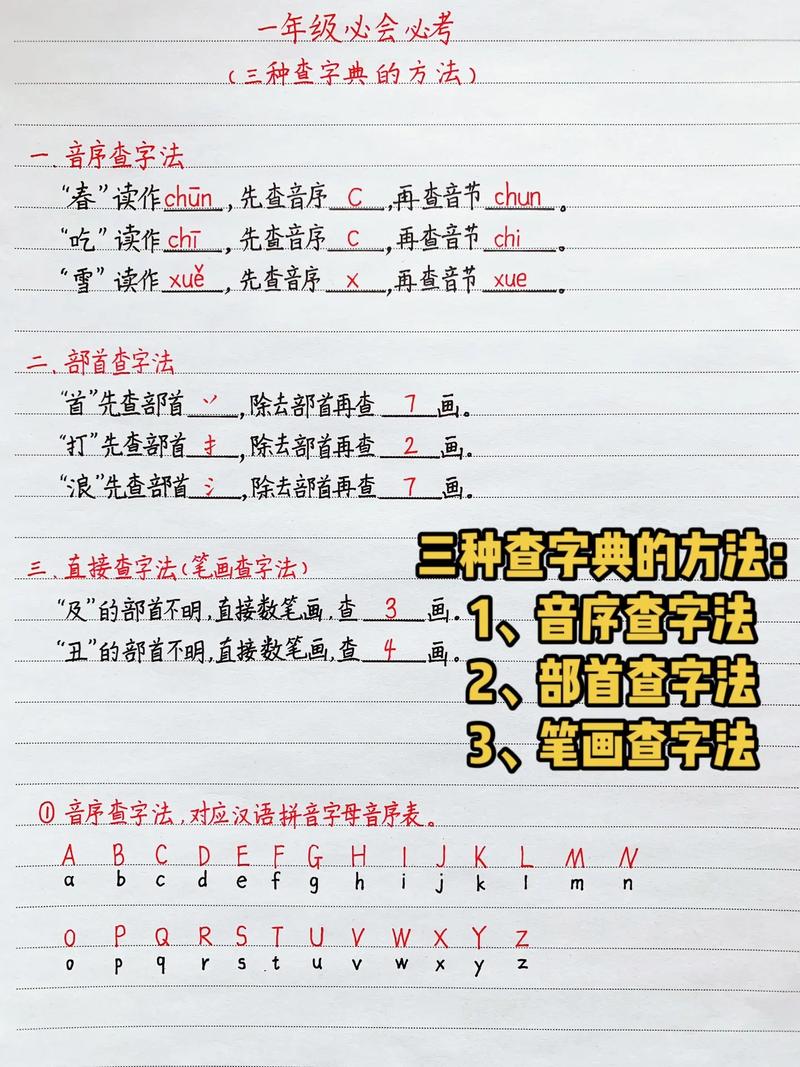 一年级必会必考
(三种查字典的方法)
一、音序查字法
“春”读作chūn,先查音序C,再查音节chun。
“吃”读作chī,先查音序C,再查音节chi。
“雪”读作xuě,先查音序x,再查音节xue。
二、部首查字法
“首”先查部首丷,除去部首再查7画。
“打”先查部首扌,除去部首再查2画。
“浪”先查部首氵,除去部首再查7画。
三、直接查字法(笔画查字法)
“及”的部首不明,直接数笔画,查3画。
“丑”的部首不明,直接数笔画,查4画。
三种查字典的方法:
1、音序查字法
2、部首查字法
3、笔画查字法
①音序查字法,对应汉语拼音字母音序表。
A B C D E F G H I J K L M N
a b c d e f g h i j k l m n
O P Q R S T U V W X Y Z
o p q r s t u v w x y z